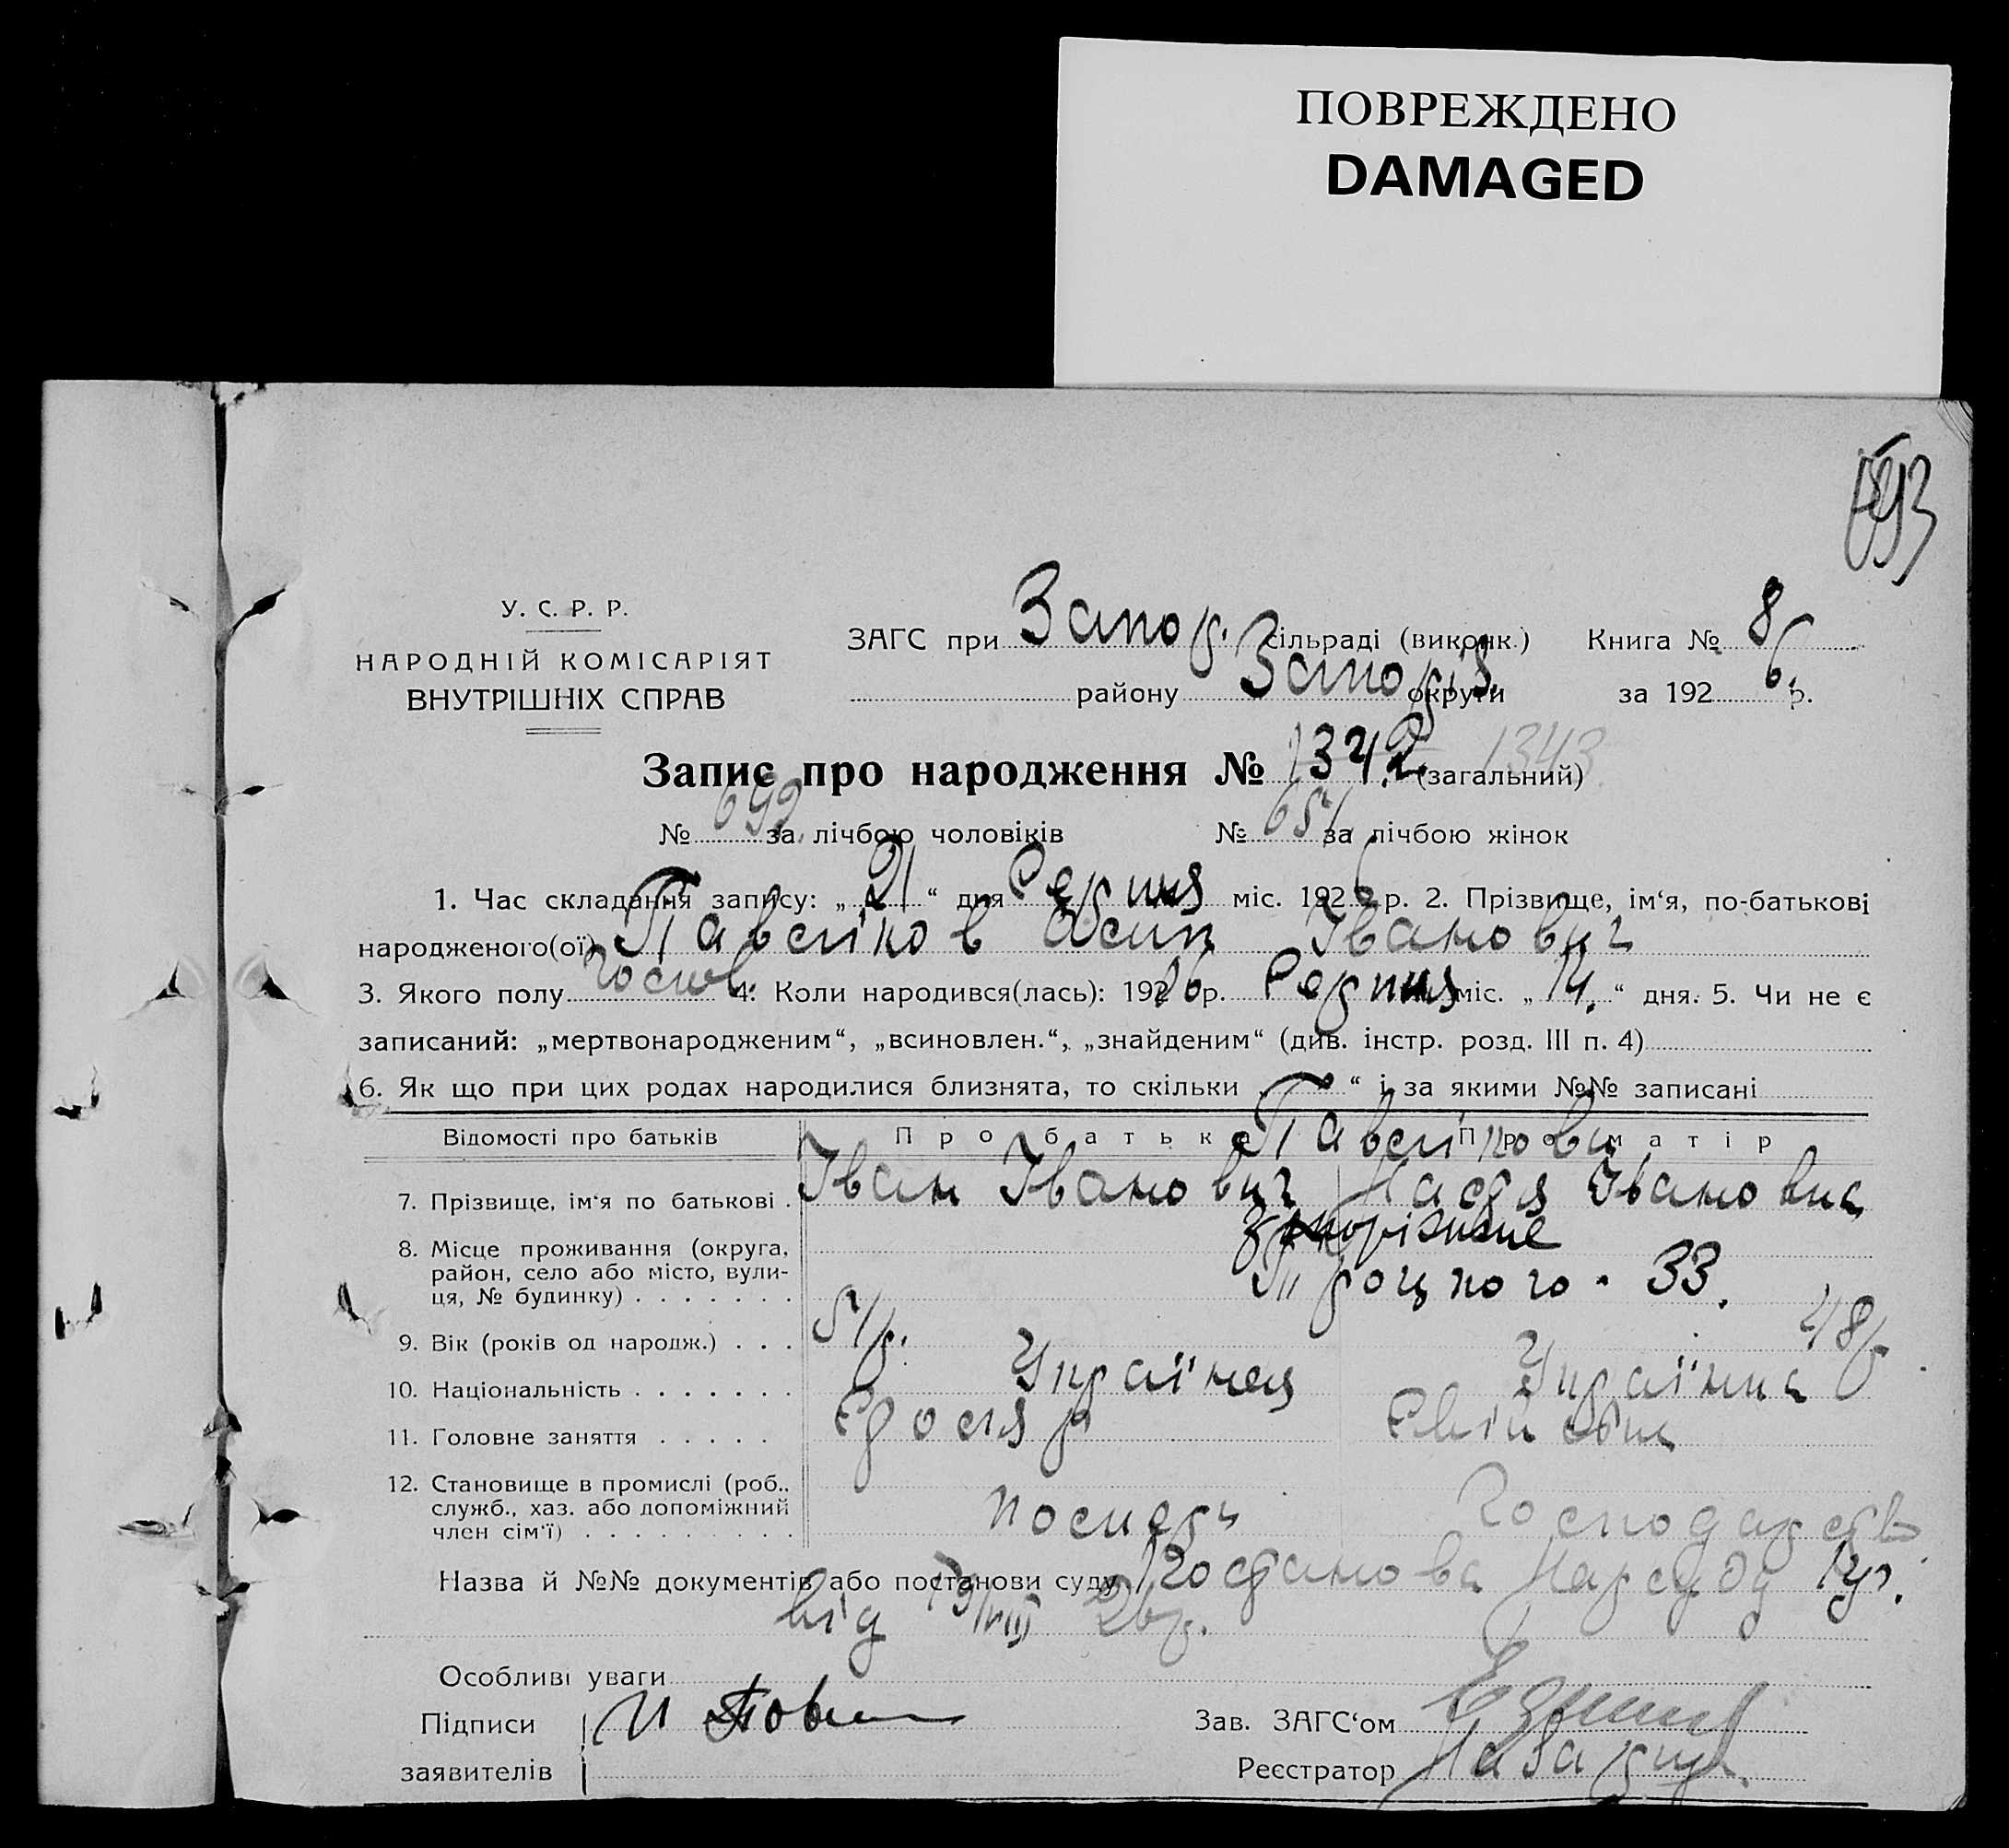 ПОВРЕЖДЕНО
DAMAGED
У. С. Р. Р.
НАРОДНІЙ КОМІСАРІЯТ
ВНУТРІШНІХ СПРАВ
ЗАГС при Запор. сільраді (виконк.) Книга № 8
району Запоріз. округи за 1926 р.
Запис про народження № 1342 (загальний) 1343
№ 692 за лічбою чоловіків № 651 за лічбою жінок
1. Час складання запису: „21“ дня Серпня міс. 1926 р. 2. Прізвище, ім‘я, по-батькові
народженого(ої) Іванович
3. Якого полу 4. Коли народився(лась): 1926 р. Серпня міс. „14.“ дня. 5. Чи не є
записаний: „мертвонародженим“, „всиновлен.“, „знайденим“ (див. інстр. розд. III п. 4)
6. Як що при цих родах народилися близнята, то скільки “ і за якими №№ записані
Відомості про батьків Про батька Про матір
7. Прізвище, ім‘я по батькові . Іван Іванович Настя Івановна
8. Місце проживання (округа, Запоріжжє
район, село або місто, вули- Троцкого. 33.
ця, № будинку) . . . . . . .
9. Вік (років од народж.) . . . 51 р. 48 р.
10. Національність . . . . . . . Українец Українка
11. Головне заняття . . . . .
12. Становище в промислі (роб..
служб., хаз. або допоміжний Господарств
член сім‘ї) . . . . . . . . .
Назва й №№ документів або постанови суду Постанова Нарсуду
від 19/VIII 26 р.
Особливі уваги
Підписи Зав. ЗАГС‘ом
заявителів Реєстратор